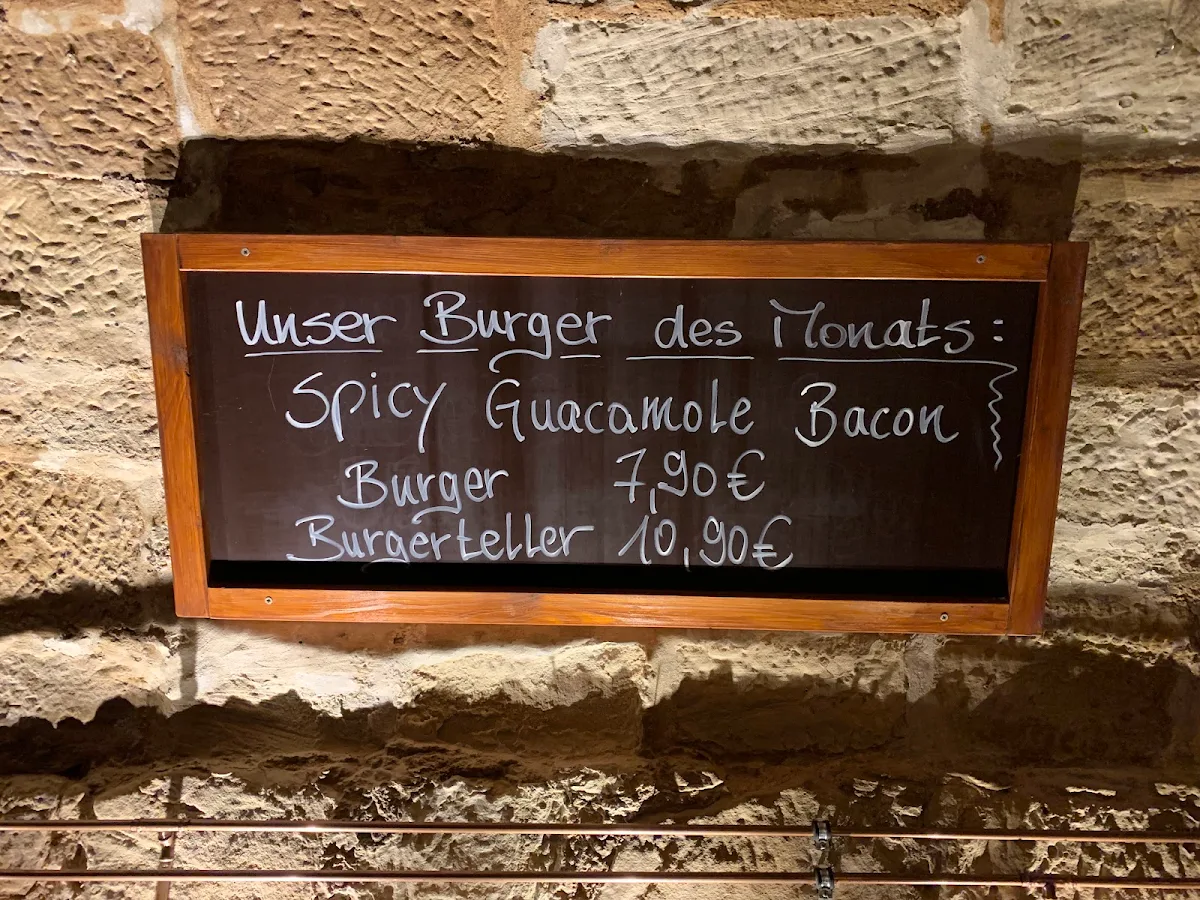 Unser Burger des Monats:
Spicy Guacamole Bacon
Burger 7,90€
Burgerteller 10,90€